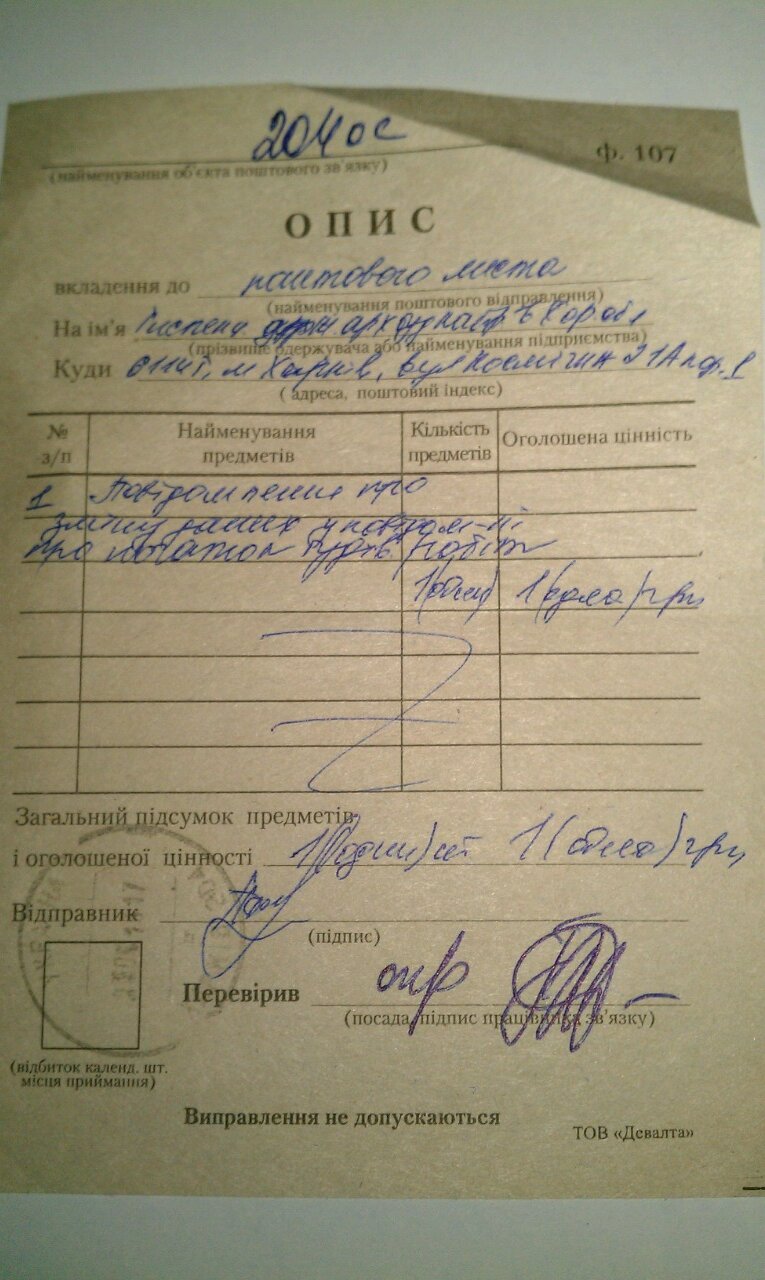 204 ос
ф. 107
(найменування об'єкта поштового зв'язку)
ОПИС
вкладення до поштового листа
(найменування поштового відправлення)
На ім'я в Харкові
(прізвище одержувача або найменування підприємства)
Куди м Харків, вул Космічна 21А под. 1
( адреса, поштовий індекс)
№ з/п
Найменування предметів
Кількість предметів
Оголошена цінність
1 Повідомлення про
зміну даних у повідом-ні
про початок буд-х робіт
1(один) 1(одна) грн
Загальний підсумок предметів
і оголошеної цінності 1(один) шт 1(одна) грн
Відправник
(підпис)
Перевірив опр
(посада, підпис працівника зв'язку)
(відбиток календ. шт.
місця приймання)
Виправлення не допускаються
ТОВ «Девалта»